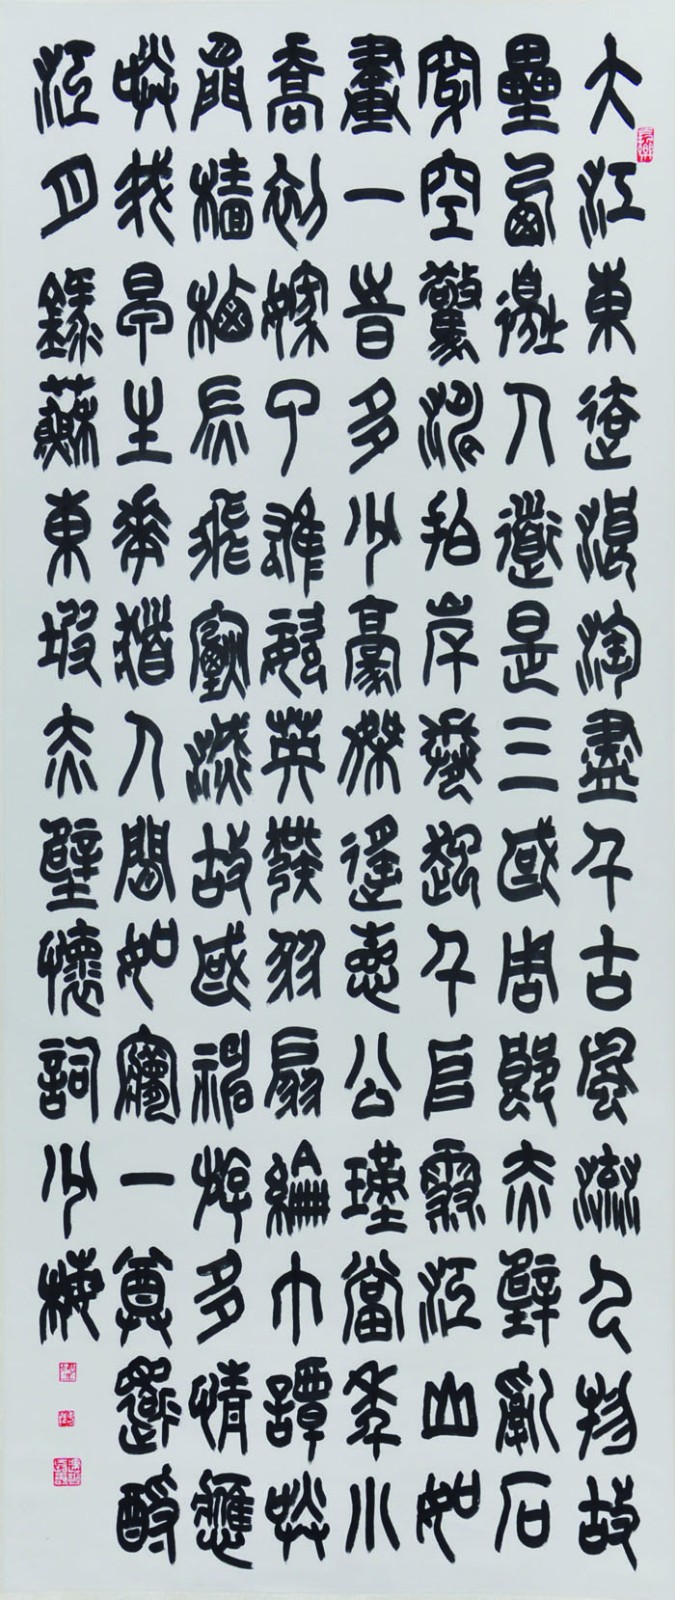 大江東去浪淘盡千古風流人物故
壘西邊人道是三國周郎赤壁亂石
穿空驚濤拍岸卷起千堆雪江山如
畫一時多少豪傑遙想公瑾當年小
喬初嫁了雄姿英發羽扇綸巾談笑
間檣櫓灰飛煙滅故國神游多情應
笑我早生華髮人間如夢一尊還酹
江月錄蘇東坡赤壁懷詞少